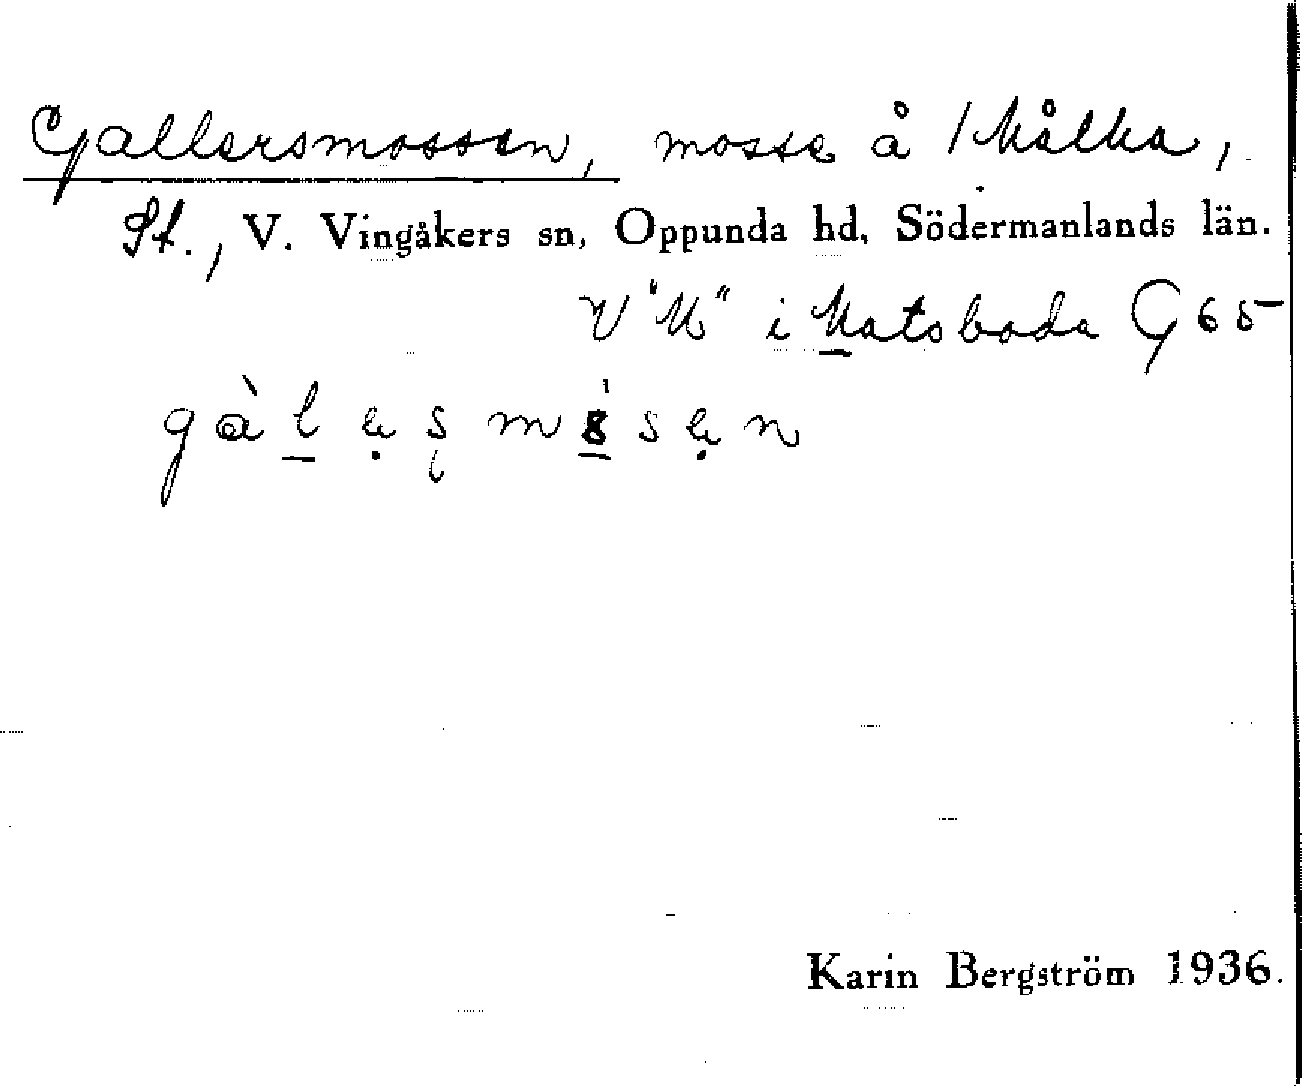 Gallersmossen, mosse å 1 Målka,
St., V. Vingåkers sn, Oppunda hd, Södermanlands län.
V "M" i Matsboda G 65
gàlẹsmsẹn
Karin Bergström 1936.